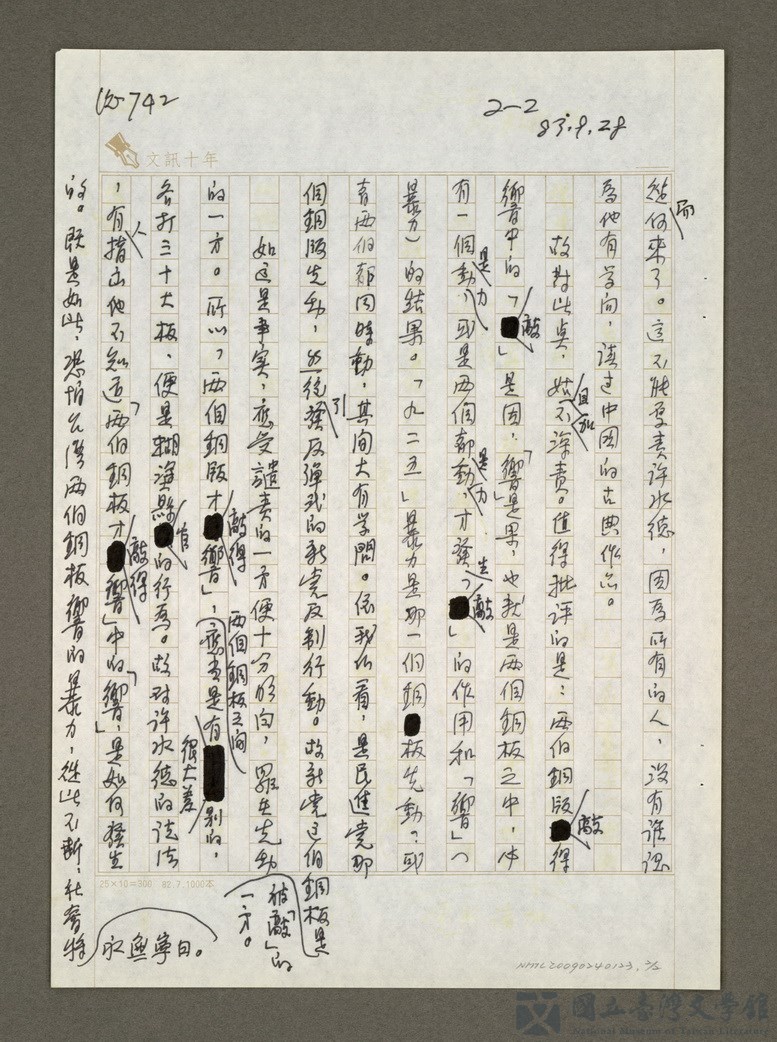 弘742
2-2
83.9.28
文訊十年
從何而來了。這不能受責許水德,因為所有的人,沒有誰認
為他有學問,讀過中國的古典作品。
故對此點,姑且不加深責。值得批評的是:兩個銅版敲得
響中的「敲」是因,「響」是果,也就是兩個銅板之中,
有一個是動力,或是兩個都是動力,才發生「敲」的作用和「響」(
暴力)的結果。「九二五」暴力是那一個銅板先動?或
者兩個都同時動,其間大有學問。依我們看,是民進黨那
個銅版先動,引發反彈式的新黨反制行動。故新黨這個銅板是
被「敲」的一方。
如這是事實,應受譴責的一方便十分明白,罪在先動
的一方。所以,兩個銅版才敲得「響」,兩個銅板之間應當是有很大差別的,
各打三十大板,便是糊塗縣官的行為。故對許水德的談話
,有人指出他不知道「兩個銅板才敲得響」中的「響」,是如何發生
的。既是如此,恐怕台灣兩個銅板響的暴力,從此不斷,社會將
永無寧日。
25×10=300 82.7.1000本
NMTL20090240123, 2/2
國立臺灣文學館
National Museum of Taiwan Literature